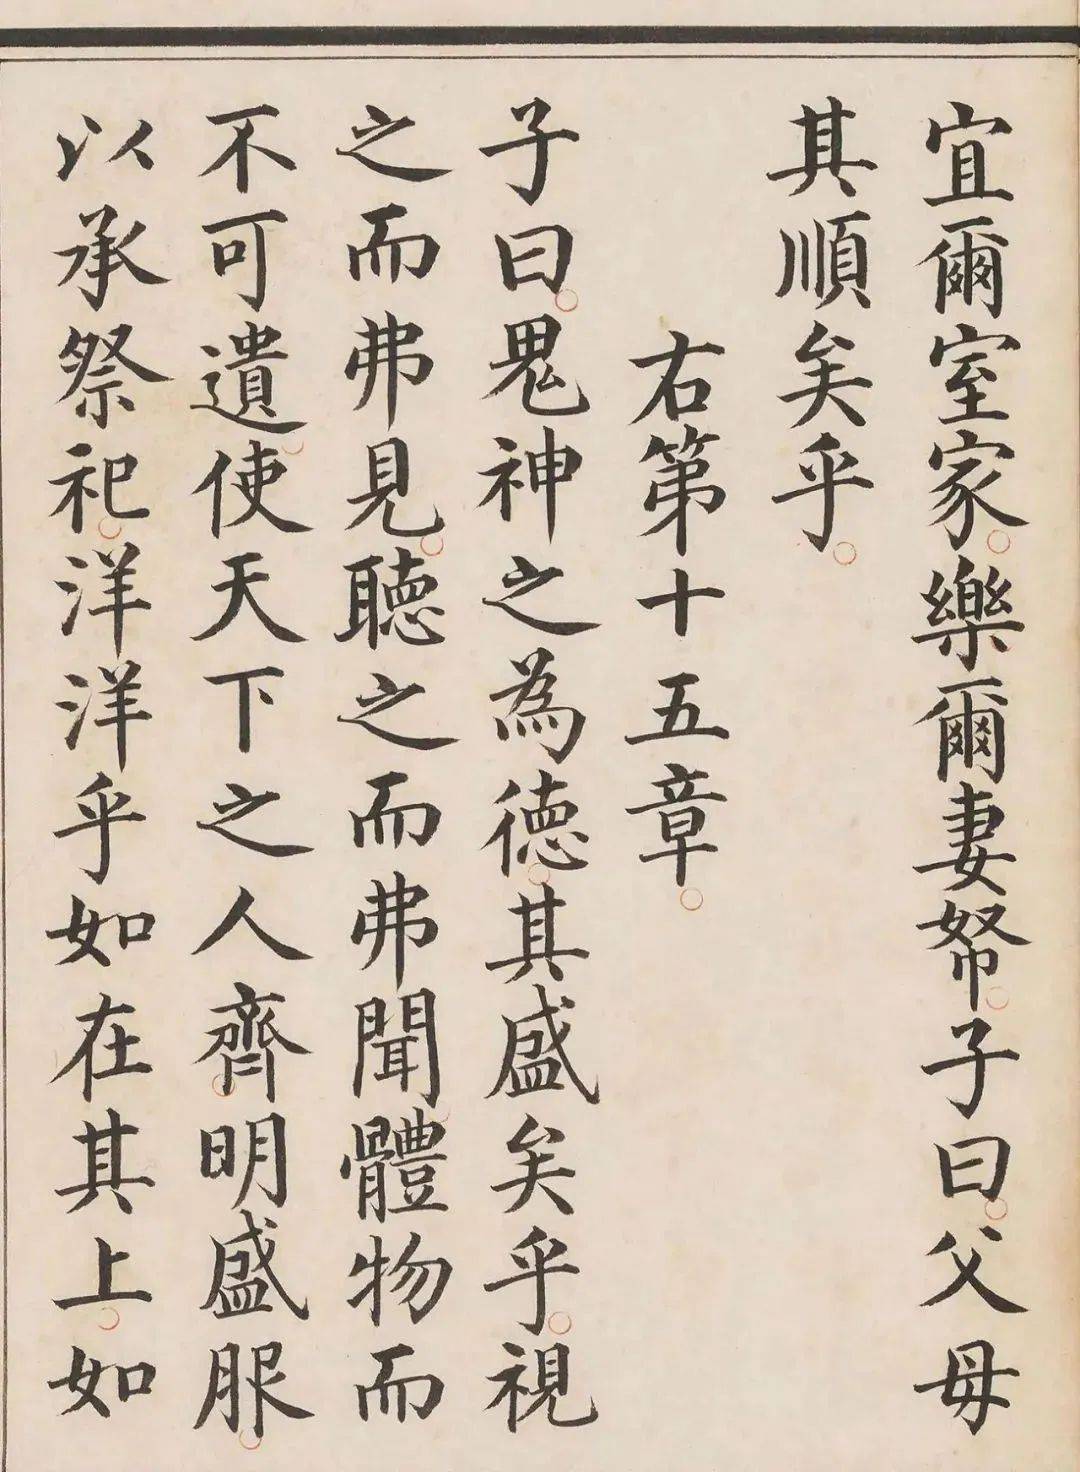 宜爾室家樂爾妻帑子曰父母
其順矣乎
右第十五章
子曰鬼神之為德其盛矣乎視
之而弗見聽之而弗聞體物而
不可遺使天下之人齊明盛服
以承祭祀洋洋乎如在其上如